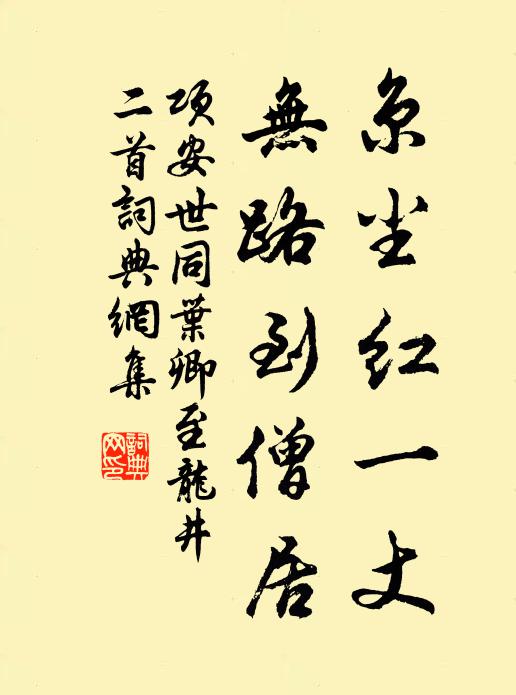 京尘红一丈
無路到僧居
项安世同葉卿至龍井
二首詞典網集
詞典
网印